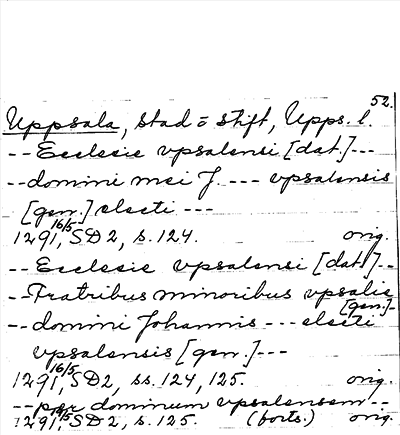 52.
Uppsala, stad o stift, Upps. l.
-- Ecclesie vpsalensi [dat.] ---
-- domini mei J. --- vpsalensis
[gen.] electi ---
1291 16/5, SD 2, s. 124. orig.
-- Ecclesie vpsalensi [dat.] --
-- Fratribus minoribus vpsalie [gen.] -
-- domini Johannis --- electi
vpsalensis [gen.] ---
1291 16/5, SD 2, ss. 124, 125. orig.
-- per dominum vpsalensem --
1291 16/5, SD 2, s. 125. (forts.) orig.